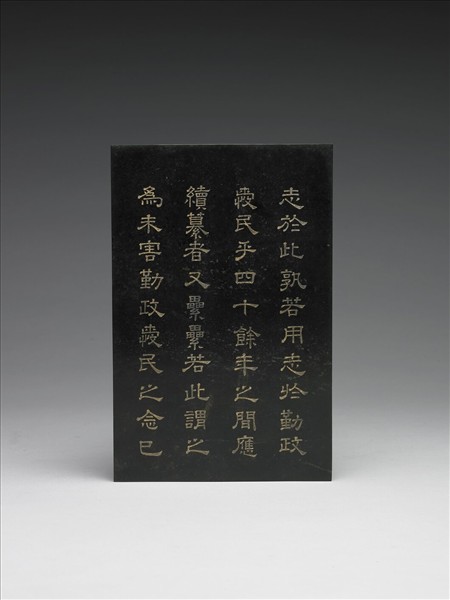 志於此孰若用志於勤政
愛民乎四十餘年之間應
續纂者又纍纍若此謂之
爲未害勤政愛民之念已